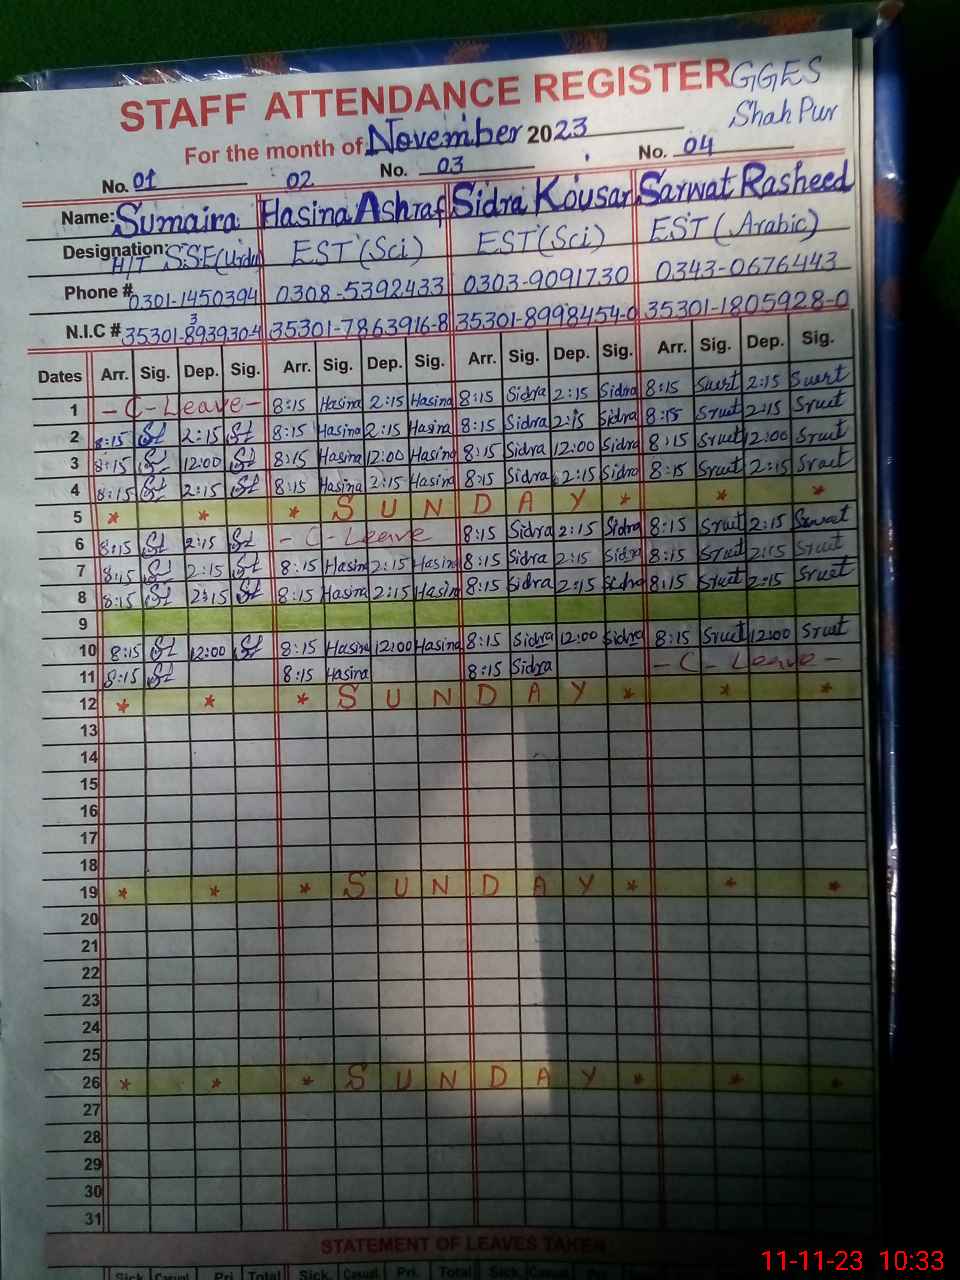 STAFF ATTENDANCE REGISTER GGES
Shah Pur
For the month of November 2023
No. 01 02 No. 03 No. 04
Name: Sumaira Hasina Ashraf Sidra Kousar Sarwat Rasheed
Designation: H/T SSE(Urdu) EST(Sci) EST(Sci) EST(Arabic)
Phone # 0301-1450394 0308-5392433 0303-9091730 0343-0676443
N.I.C # 35301-8939304 35301-7863916-8 35301-8998454-0 35301-1805928-0
Dates Arr. Sig. Dep. Sig. Arr. Sig. Dep. Sig. Arr. Sig. Dep. Sig. Arr. Sig. Dep. Sig.
1 - C - Leave - 8:15 Hasina 2:15 Hasina 8:15 Sidra 2:15 Sidra 8:15 2:15
2 8:15 2:15 8:15 Hasina 2:15 Hasina 8:15 Sidra 2:15 Sidra 8:15 2:15
3 8:15 12:00 8:15 Hasina 12:00 Hasina 8:15 Sidra 12:00 Sidra 8:15 12:00
4 8:15 2:15 8:15 Hasina 2:15 Hasina 8:15 Sidra 2:15 Sidra 8:15 2:15
5 * * * S U N D A Y * * *
6 8:15 2:15 - C - Leave 8:15 Sidra 2:15 Sidra 8:15 2:15
7 8:15 2:15 8:15 Hasina 2:15 Hasina 8:15 Sidra 2:15 Sidra 8:15 2:15
8 8:15 2:15 8:15 Hasina 2:15 Hasina 8:15 Sidra 2:15 Sidra 8:15 2:15
9
10 8:15 12:00 8:15 Hasina 12:00 Hasina 8:15 Sidra 12:00 Sidra 8:15 12:00
11 8:15 8:15 Hasina 8:15 Sidra - C - Leave -
12 * * * S U N D A Y * * *
13
14
15
16
17
18
19 * * * S U N D A Y * * *
20
21
22
23
24
25
26 * * * S U N D A Y * * *
27
28
29
30
31
STATEMENT OF LEAVES TAKEN
Sick Casual Pri. Total Sick. Casual Pri. Total Sick
11-11-23 10:33